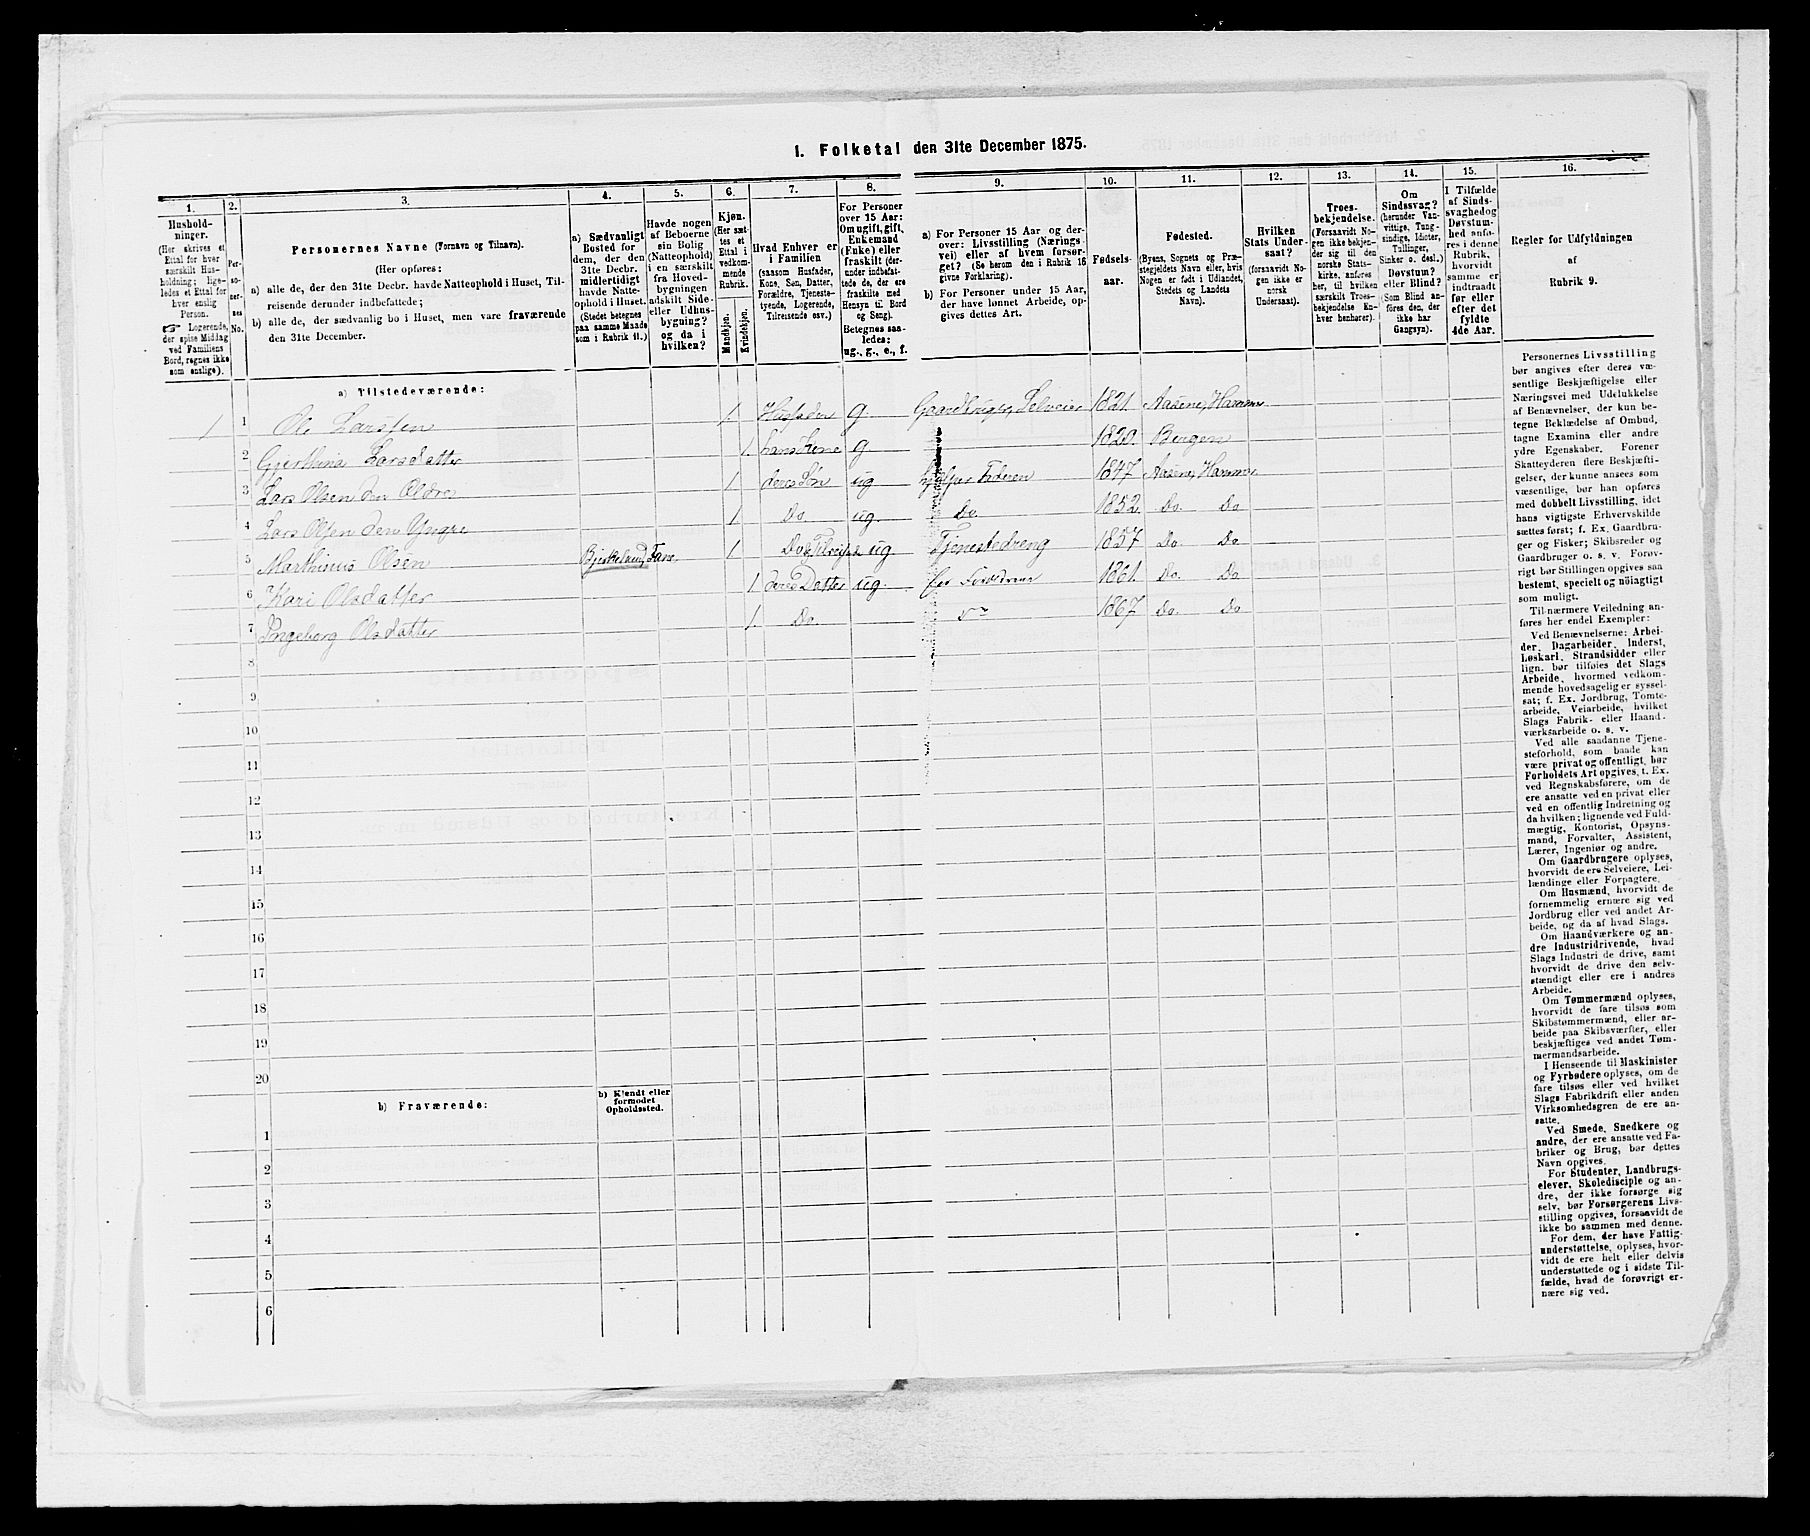 1. Folketal den 31te December 1875.
1.
2.
3.
4.
5.
6.
7.
8.
9.
10.
11.
12.
13.
14.
15.
16.
Hushold-
ninger.
(Her skrives et
Ettal for hver
særskilt Hus-
holdning; lige-
ledes et Ettal for
hver enslig
Person.
☞ Logerende,
der spise Middag
ved Familiens
Bord, regnes ikke
som enslige).
Per-
so-
ner-
nes
No.
Personernes Navne (Fornavn og Tilnavn).
(Her opføres:
a) alle de, der den 31te Decbr. havde Natteophold i Huset, Til-
reisende derunder indbefattede;
b) alle de, der sædvanlig bo i Huset, men vare fraværende
den 31te December.
a) Sædvanligt
Bosted for
dem, der den
31te Decbr.
midlertidigt
havde Natte-
ophold i Huset.
(Stedet betegnes
paa samme Maade
som i Rubrik 11.)
Havde nogen
af Beboerne
sin Bolig
(Natteophold)
i en særskilt
fra Hoved-
bygningen
adskilt Side-
eller Udhus-
bygning?
og da i
hvilken?
Kjøn.
(Her sæt-
tes et
Ettal i
vedkom-
mende
Rubrik.
Mandkjøn.
Kvindekjøn.
Hvad Enhver er
i Familien
(saasom Husfader,
Kone, Søn, Datter,
Forældre, Tjeneste-
tyende, Logerende,
Tilreisende osv.)
For Personer
over 15 Aar:
Om ugift, gift,
Enkemand
(Enke) eller
fraskilt (der-
under indbefat-
tede de, der ere
fraskilte med
Hensyn til Bord
og Seng).
Betegnes saa-
ledes:
ug., g., e., f.
a) For Personer 15 Aar og der-
over: Livsstilling (Nærings-
vei) eller af hvem forsør-
get? (Se herom den i Rubrik 16
givne Forklaring).
b) For Personer under 15 Aar,
der have lønnet Arbeide, op-
gives dettes Art.
Fødsels-
aar.
Fødested.
(Byens, Sognets og Præ-
stegjeldets Navn eller, hvis
Nogen er født i Udlandet,
Stedets og Landets
Navn).
Hvilken
Stats Under-
saat?
(forsaavidt No-
gen ikke er
norsk
Undersaat).
Troes-
bekjendelse.
(Forsaavidt No-
gen ikke bekjen-
der sig til den
norske Stats-
kirke, anføres
her, til hvilken
særskilt Troes-
bekjendelse En-
hver henhører).
Om
Sindssvag?
(herunder Van-
vittige, Tung-
sindige, Idioter,
Tullinger,
Sinker o. desl.)
Døvstum?
eller Blind?
(Som Blind an-
føres den, der
ikke har
Gangsyn).
I Tilfælde
af Sinds-
svaghed og
Døvstum-
hed anfø-
res i denne
Rubrik,
hvorvidt
samme er
indtraadt
før eller
efter det
fyldte
4de Aar.
Regler for Udfyldningen
af
Rubrik 9.
a) Tilstedeværende:
1 1 Ole Larssen 1. Husfader g. Gaardbruger, Selveier 1821. Aasene, Hammer
2 Gjerthina Larsdatter 1. hans Kone g. 1820. Bergen
3 Lars Olsen den Ældre 1 deres Søn ug hjelper Faderen 1847 Aasene, Hammer
4 Lars Olsen den Yngre 1. Do. ug. Do. 1852. Do. Do
5 Marthinus Olsen Birkelund, Fane. 1 Do Tilreis. ug. Tjenestedreng 1857 Do. Do
6 Kari Olsdatter 1 deres Datter ug. hos Forældrene 1861. Do. Do.
7 Ingeborg Olsdatter 1. Do. Do 1867 Do. Do
8
9
10
11
12
13
14
15
16
17
18
19
20
b) Fraværende:
b) Kjendt eller
formodet
Opholdssted.
1
2
3
4
5
6
Personernes Livsstilling
bør angives efter deres væ-
sentlige Beskjæftigelse eller
Næringsvei med Udelukkelse
af Benævnelser, der kun be-
tegne Beklædelse af Ombud,
tagne Examina eller andre
ydre Egenskaber. Forener
Skatteyderen flere Beskjæfti-
gelser, der kunne ansees som
væsentlige, bør han opføres
med dobbelt Livsstilling, idet
hans vigtigste Erhvervskilde
sættes først; f. Ex. Gaardbru-
ger og Fisker; Skibsreder og
Gaardbruger o. s. v. Forøv-
rigt bør Stillingen opgives saa
bestemt, specielt og nøiagtigt
som muligt.
Til nærmere Veiledning an-
føres her endel Exempler:
Ved Benævnelserne: Arbei-
der, Dagarbeider, Inderst,
Løskarl, Strandsidder eller
lign. bør tilføies det Slags
Arbeide, hvormed vedkom-
mende hovedsagelig er syssel-
sat; f. Ex. Jordbrug, Tomte-
arbeide, Veiarbeide, hvilket
Slags Fabrik- eller Haand-
værksarbeide o. s. v.
Ved alle saadanne Tjene-
steforhold, som baade kan
være privat og offentligt, bør
Forholdets Art opgives, t. Ex.
ved Regnskabsførere, om de
ere ansatte ved en privat eller
ved en offentlig Indretning og
da hvilken; lignende ved Fuld-
mægtig, Kontorist, Opsyns-
mand, Forvalter, Assistent,
Lærer, Ingeniør og andre.
Om Gaardbrugere oplyses,
hvorvidt de ere Selveiere, Lei-
lændinge eller Forpagtere.
Om Husmænd, hvorvidt de
fornemmelig ernære sig ved
Jordbrug eller ved andet Ar-
beide, og da af hvad Slags.
Om Haandværkere og an-
dre Industridrivende, hvad
Slags Industri de drive, samt
hvorvidt de drive den selv-
stændigt eller ere i andres
Arbeide.
Om Tømmermænd oplyses,
hvorvidt de fare tilsøs som
Skibstømmermænd, eller ar-
beide paa Skibsværfter, eller
beskjæftiges ved andet Tøm-
mermandsarbeide.
I Henseende til Maskinister
og Fyrbødere oplyses, om de
fare tilsøs eller ved hvilket
Slags Fabrikdrift eller anden
Virksomhedsgren de ere an-
satte.
Ved Smede, Snedkere og
andre, der ere ansatte ved Fa-
briker og Brug, bør dettes
Navn opgives.
For Studenter, Landbrugs-
elever, Skoledisciple og an-
dre, der ikke forsørge sig
selv, bør Forsørgerens Livs-
stilling opgives, forsaavidt de
ikke bo sammen med denne.
For dem, der have Fattig-
understøttelse, oplyses, hvor-
vidt de ere helt eller delvis
understøttede og i sidste Til-
fælde, hvad de forøvrigt er-
nære sig ved.